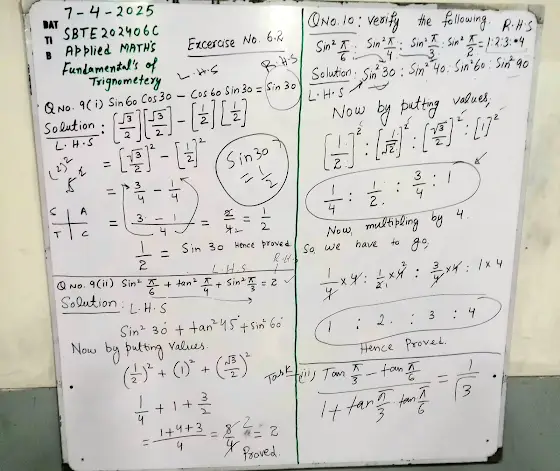 7-4-2025
DAT
TI
B
SBTE202406C
Applied MATH's
Fundamental's of
Trignometery
Excercise No. 6.2
L.H.S
R.H.S
Q No. 9(i) Sin60 Cos30 - Cos60 Sin30 = Sin 30
Solution: [√3/2][√3/2] - [1/2][1/2]
L.H.S
= [√3/2]² - [1/2]²
= 3/4 - 1/4
S | A
T | C
= 3-1/4 = 2/4 2 = 1/2
1/2 = Sin 30 Hence proved
Sin30 = 1/2
L.H.S
R.H.S
Q No. 9(ii) Sin² π/6 + tan² π/4 + Sin² π/3 = 2
Solution: L.H.S
Sin² 30 + tan² 45 + sin² 60
Now by putting values.
(1/2)² + (1)² + (√3/2)²
1/4 + 1 + 3/2
= 1+4+3/4 = 8/4 2 = 2
Proved.
Q No. 10: verify the following.
R.H.S
Sin² π/6 : Sin² π/4 : Sin² π/3 : Sin² π/2 = 1:2:3:4
Solution: Sin² 30 : Sin² 40 : Sin² 60 : Sin² 90
L.H.S
Now by putting values,
[1/2]² : [1/√2]² : [√3/2]² : [1]²
1/4 : 1/2 : 3/4 : 1
Now, multipling by 4.
So, we have to go,
1/4 × 4 : 1/2 × 4 2 : 3/4 × 4 : 1 × 4
1 : 2 : 3 : 4
Hence Proved.
Task (ii) Tan π/3 - tan π/6 / 1 + tan π/3 . tan π/6 = 1/√3